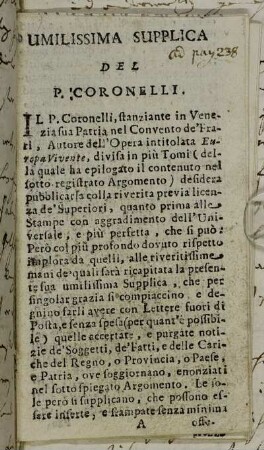 UMILISSIMA SUPPLICA
ad pag 238
DEL
P. CORONELLI.
IL P. Coronelli, stanziante in Vene-
zia sua Patria nel Convento de'Fra-
ri, Autore dell'Opera intitolata Eu-
ropa Vivente, divisa in più Tomi (del-
la quale ha epilogato il contenuto nel
sotto registrato Argomento) desidera
pubblicarla colla riverita previa licen-
za de'Superiori, quanto prima alle
Stampe con aggradimento dell'Uni-
versale, e più perfetta, che si può:
Però col più profondo dovuto rispetto
implora da quelli, alle riveritissime
mani de'quali sarà ricapitata la presen-
te sua umilissima Supplica, che per
singolar grazia si compiaccino, e de-
gnino farli avere con Lettere fuori di
Posta, e senza spesa (per quant'è possibi-
le) quelle accertate, e purgate noti-
zie de'Soggetti, de'Fatti, e delle Cari-
che del Regno, o Provincia, o Paese,
e Patria, ove soggiornano, enonziati
nel sotto spiegato Argomento. Le so-
le però si supplicano, che possono es-
sere inserte, e stampate senza minima
A offe-